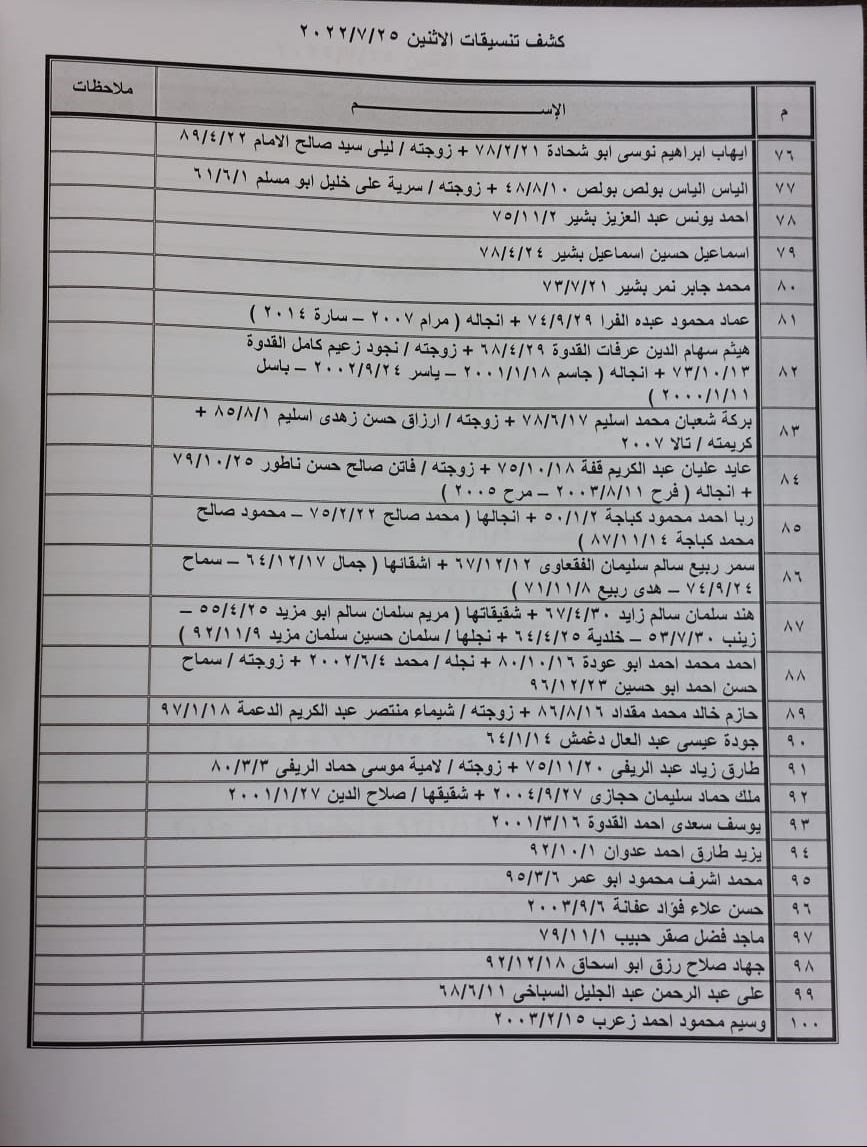 كشف تنسيقات الاثنين ٢٠٢٢/٧/٢٥
م الإســـــم ملاحظات
٧٦ ايهاب ابراهيم نوسى ابو شحادة ٧٨/٢/٢١ + زوجته / ليلى سيد صالح الامام ٨٩/٤/٢٢
٧٧ الياس الياس بولص بولص ٤٨/٨/١٠ + زوجته / سرية على خليل ابو مسلم ٦١/٦/١
٧٨ احمد يونس عبد العزيز بشير ٧٥/١١/٢
٧٩ اسماعيل حسين اسماعيل بشير ٧٨/٤/٢٤
٨٠ محمد جابر نمر بشير ٧٣/٧/٢١
٨١ عماد محمود عبده الفرا ٧٤/٩/٢٩ + انجاله ( مرام ٢٠٠٧ – سارة ٢٠١٤ )
٨٢ هيثم سهام الدين عرفات القدوة ٦٨/٤/٢٩ + زوجته / نجود زعيم كامل القدوة
٧٣/١٠/١٣ + انجاله ( جاسم ٢٠٠١/١/١٨ – ياسر ٢٠٠٢/٩/٢٤ – باسل
٢٠٠٠/١/١١ )
٨٣ بركة شعبان محمد اسليم ٧٨/٦/١٧ + زوجته / ارزاق حسن زهدى اسليم ٨٥/٨/١ +
كريمته / تالا ٢٠٠٧
٨٤ عايد عليان عبد الكريم قفة ٧٥/١٠/١٨ + زوجته / فاتن صالح حسن ناطور ٧٩/١٠/٢٥
+ انجاله ( فرح ٢٠٠٣/٨/١١ – مرح ٢٠٠٥ )
٨٥ ربا احمد محمود كباجة ٥٠/١/٢ + انجالها ( محمد صالح ٧٥/٢/٢٢ – محمود صالح
محمد كباجة ٨٧/١١/١٤ )
٨٦ سمر ربيع سالم سليمان الفقعاوى ٦٧/١٢/١٢ + اشقائها ( جمال ٦٤/١٢/١٧ – سماح
٧٤/٩/٢٤ – هدى ربيع ٧١/١١/٨ )
٨٧ هند سلمان سالم زايد ٦٧/٤/٣٠ + شقيقاتها ( مريم سلمان سالم ابو مزيد ٥٥/٤/٢٥ –
زينب ٥٣/٧/٣٠ – خلدية ٦٤/٤/٢٥ + نجلها / سلمان حسين سلمان مزيد ٩٢/١١/٩ )
٨٨ احمد محمد احمد ابو عودة ٨٠/١٠/١٦ + نجله / محمد ٢٠٠٢/٦/٤ + زوجته / سماح
حسن احمد ابو حسين ٩٦/١٢/٢٣
٨٩ حازم خالد محمد مقداد ٨٦/٨/١٦ + زوجته / شيماء منتصر عبد الكريم الدعمة ٩٧/١/١٨
٩٠ جودة عيسى عبد العال دغمش ٦٤/١/١٤
٩١ طارق زياد عبد الريفى ٧٥/١١/٢٠ + زوجته / لامية موسى حماد الريفى ٨٠/٣/٣
٩٢ ملك حماد سليمان حجازى ٢٠٠٤/٩/٢٧ + شقيقها / صلاح الدين ٢٠٠١/١/٢٧
٩٣ يوسف سعدى احمد القدوة ٢٠٠١/٣/١٦
٩٤ يزيد طارق احمد عدوان ٩٢/١٠/١
٩٥ محمد اشرف محمود ابو عمر ٩٥/٣/٦
٩٦ حسن علاء فؤاد عفانة ٢٠٠٣/٩/٦
٩٧ ماجد فضل صقر حبيب ٧٩/١١/١
٩٨ جهاد صلاح رزق ابو اسحاق ٩٢/١٢/١٨
٩٩ على عبد الرحمن عبد الجليل السباخى ٦٨/٦/١١
١٠٠ وسيم محمود احمد زعرب ٢٠٠٣/٢/١٥